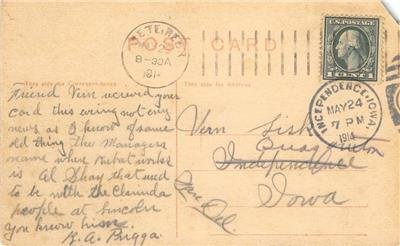 POST CARD
8-30A
191
U.S. POSTAGE
1 CENT 1
INDEPENDENCE, IOWA.
MAY 24
7 PM
1914
This side for Correspondence
Friend Vern received your
card this evning not eny
news as I know of same
old thing the Managers
name where Kubat works
is Al Shay that used
to be with the Clarinda
people at Lincoln
you know him.
Vern Fish
Quasqueton
Independence
Iowa
Gen Del.